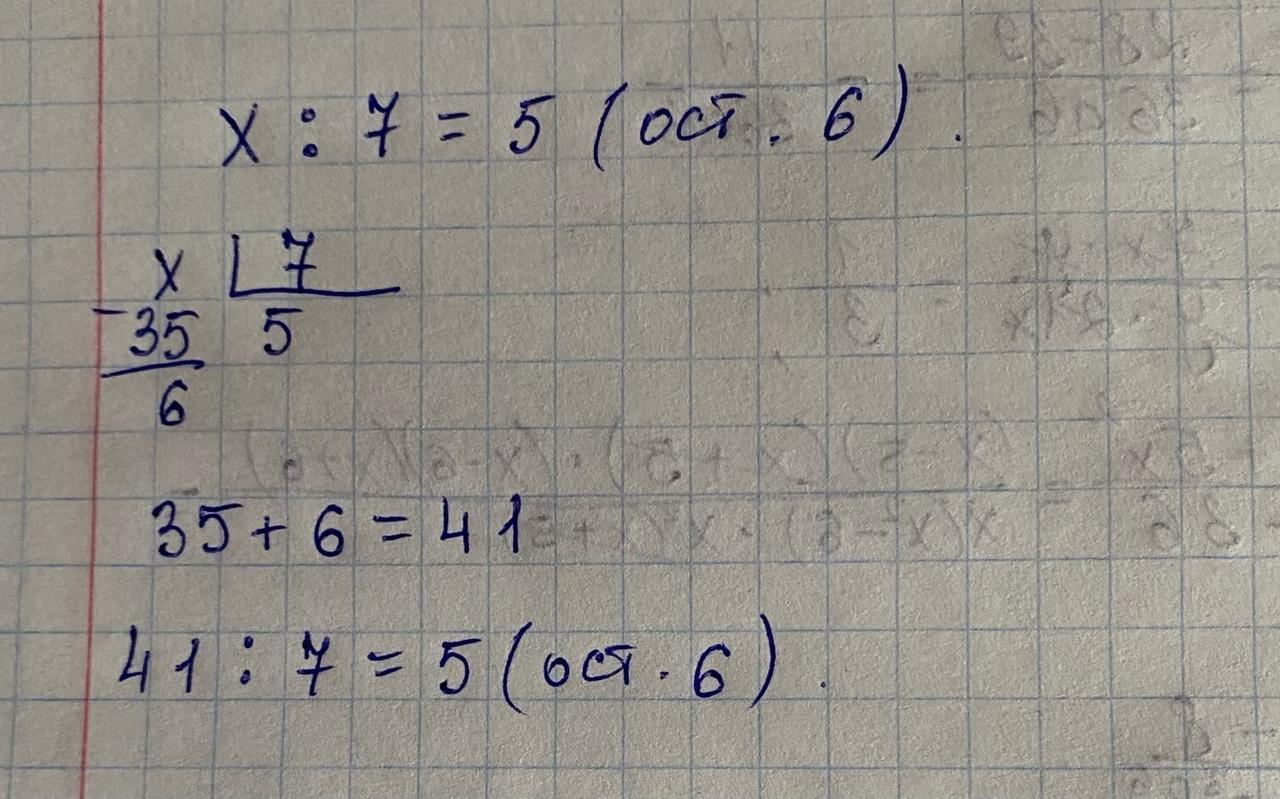 x : 7 = 5 (ост. 6).
x 7
- 35 5
6
35 + 6 = 41
41 : 7 = 5 (ост. 6).